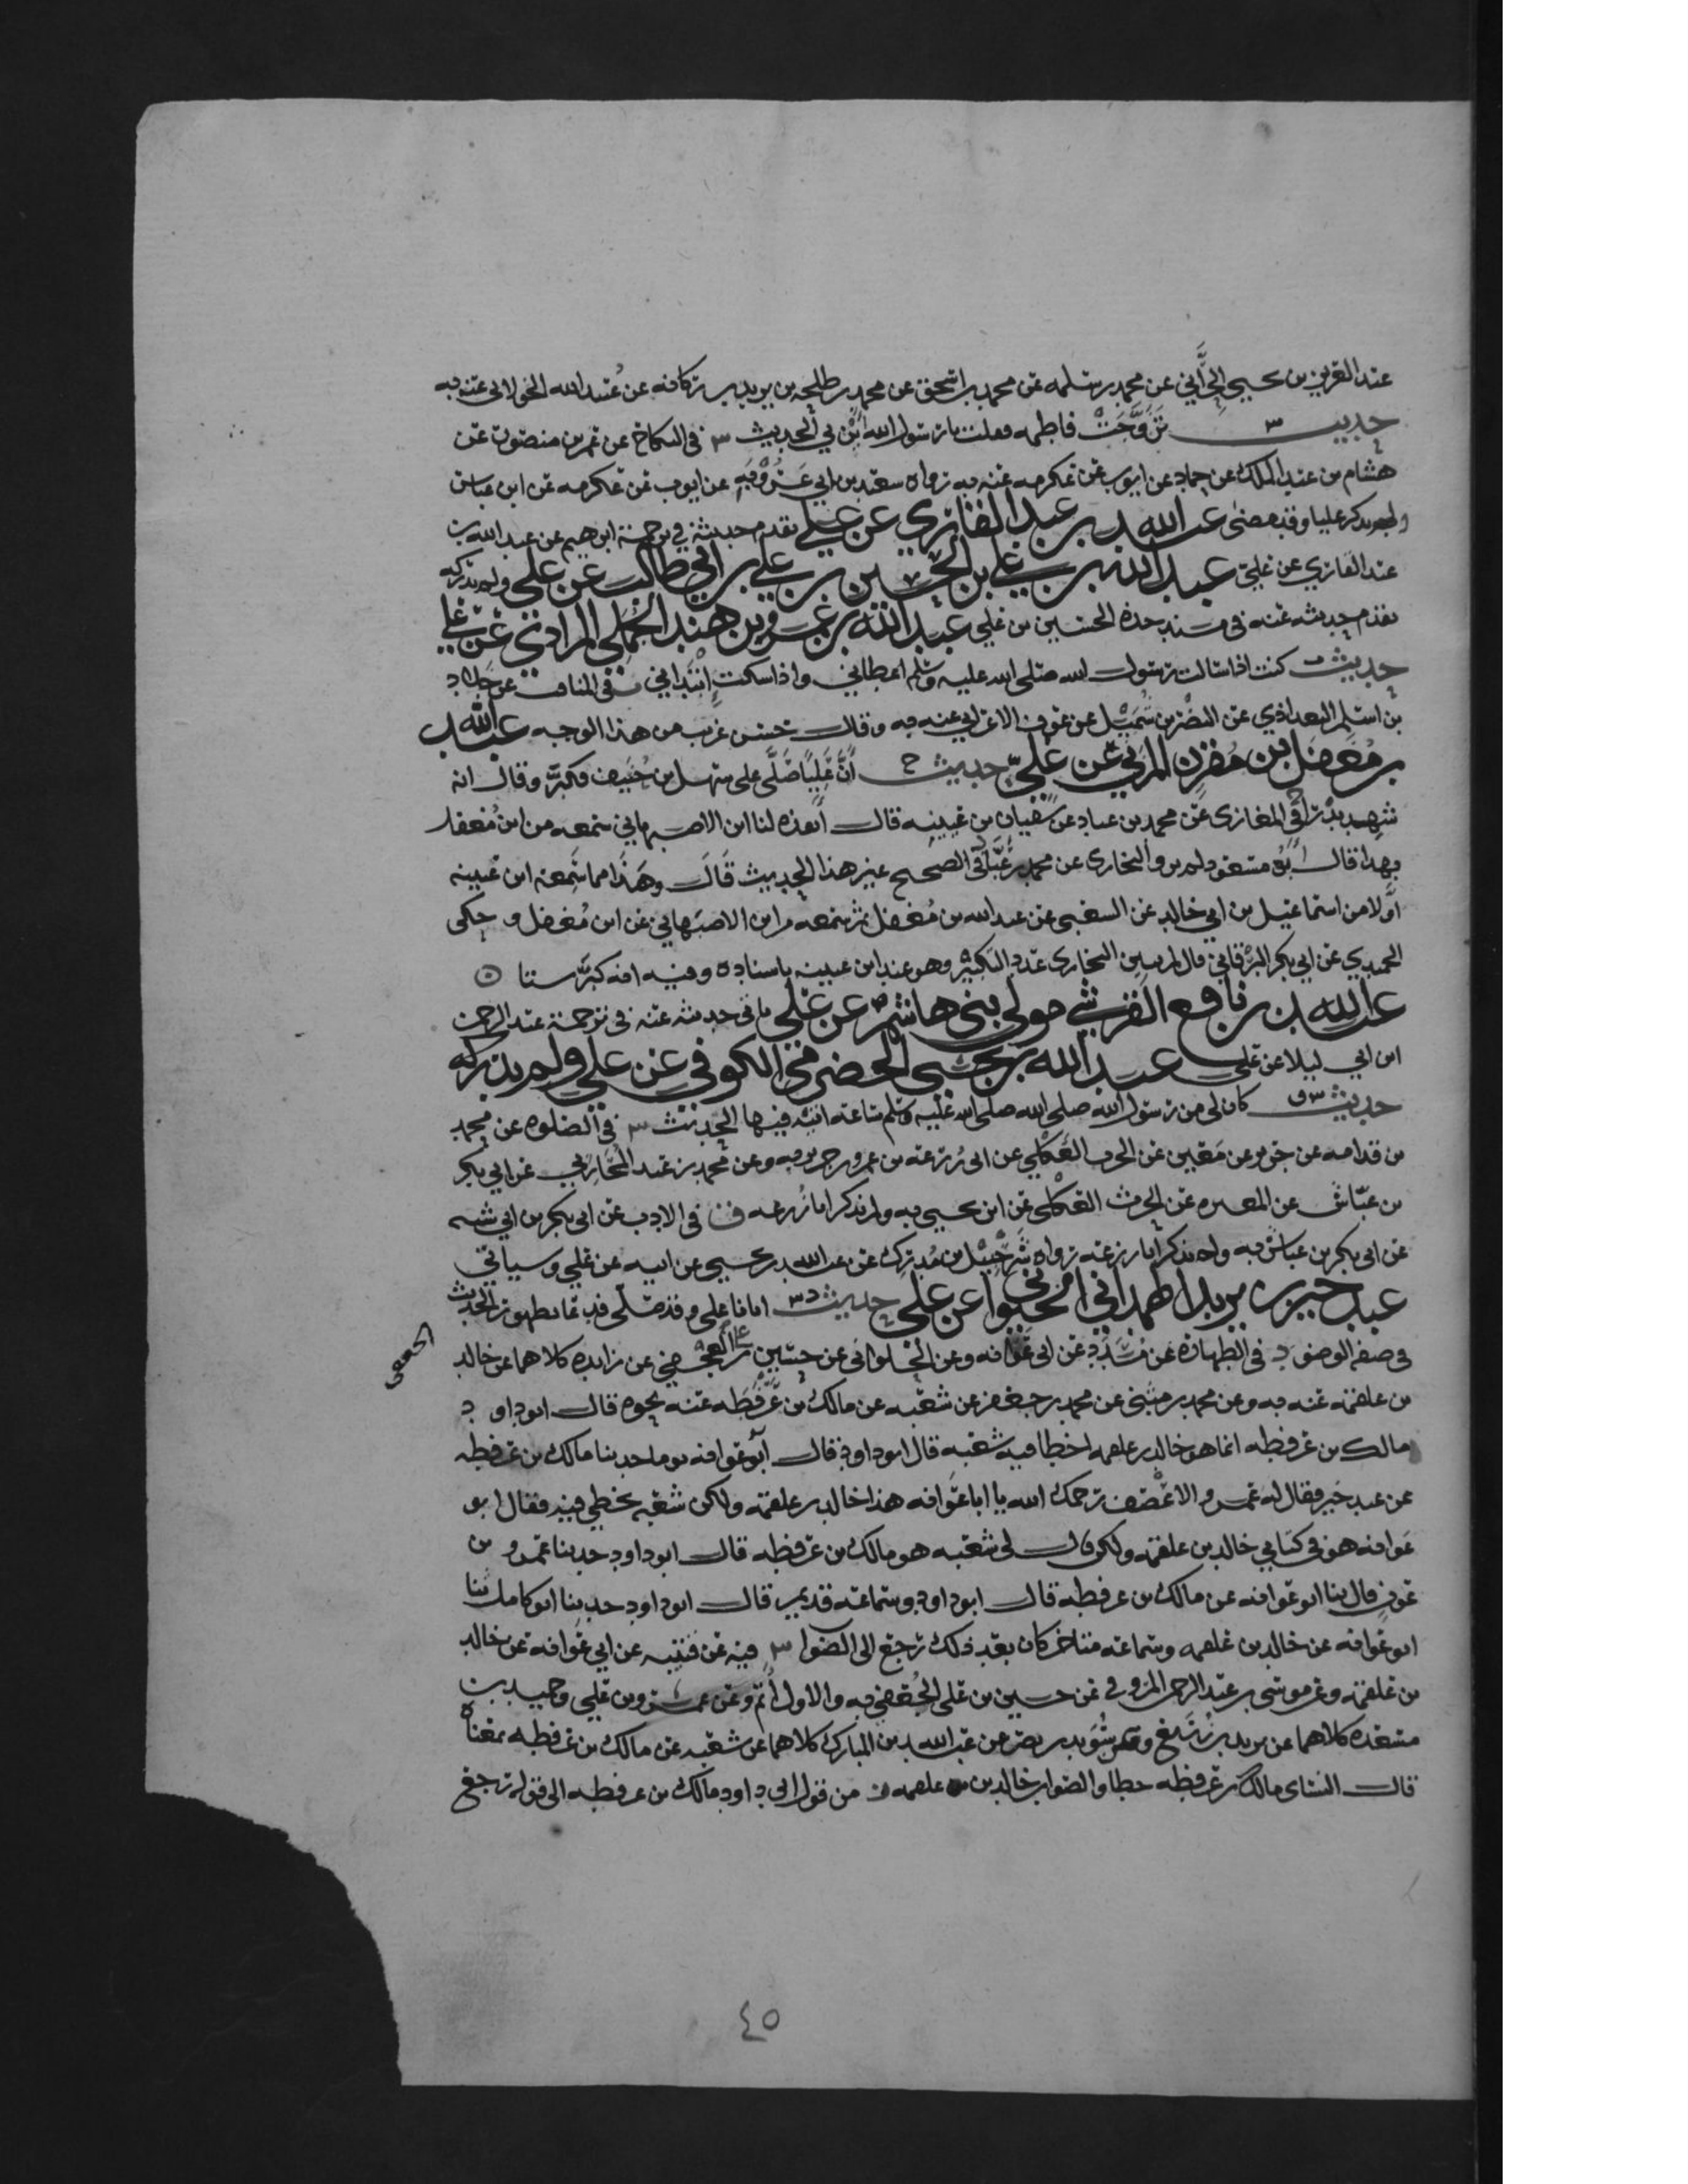 عبد العزيز بن يحيى الحراني عن محمد بن سلمه عن محمد بن اسحق عن محمد بن طلحه بن يزيد بن ركانه عن عبيد الله الخولاني عنه به
حديث س تزوجت فاطمه فقلت يا رسول الله ابن بي الحديث س في النكاح عن عمرو بن منصور عن
هشام بن عبد الملك عن حماد عن ايوب عن عكرمه عنه به رواه سعيد بن ابي عروبه عن ايوب عن عكرمه عن ابن عباس
ولم يذكر عليا وقد مضى عبد الله بن عبد القاري عن علي تقدم حديثه في ترجمة ابرهيم عن عبد الله بن
عبد القاري عن علي عبد الله بن علي بن الحسين بن علي بن ابي طالب عن علي ولم يدركه
تقدم حديثه عنه في مسند جده الحسين بن علي عبد الله بن عمرو بن هند الجملي المرادي عن علي
حديث ت كنت اذا سالت رسول الله صلى الله عليه وسلم اعطاني واذا سكت ابتداني ت في المناقب عن خلاد
بن اسلم البغدادي عن النضر بن شميل عن عوف الاعرابي عنه به وقال حسن غريب من هذا الوجه عبد الله
بن معقل بن مقرن المزني عن علي حديث خ ان عليا صلى على سهل بن حنيف فكبر وقال انه
شهد بدرا خ في المغازي عن محمد بن عباد عن سفيان بن عيينه قال انفذه لنا ابن الاصبهاني سمعه من ابن معقل
بهذا قال ابو مسعود لم يرو البخاري عن محمد بن عباد في الصحيح غير هذا الحديث قال وهذا مما سمعه ابن عيينه
اولا من اسماعيل بن ابي خالد عن الشعبي عن عبد الله بن معقل ثم سمعه من ابن الاصبهاني عن ابن معقل وحكى
الحميدي عن ابي بكر البرقاني قال لم يبين البخاري عدد التكبير وهو عند ابن عيينه باسناده وفيه انه كبر ستا
عبد الله بن نافع القرشي مولى بني هاشم عن علي ياتي حديثه عنه في ترجمة عبد الرحمن
ابن ابي ليلا عن علي عبد الله بن نجي الحضرمي الكوفي عن علي ولم يدركه
حديث س ق كان لي من رسول الله صلى الله صلى الله عليه وسلم ساعه اتيه فيها الحديث س في الصلوه عن محمد
بن قدامه عن جرير عن مغيره عن الحرث العكلي عن ابي زرعه بن عمرو بن جرير به وعن محمد بن عبيد المحاربي عن ابي بكر
بن عياش عن المغيره عن الحرث العكلي عن ابن نجي به ولم يذكر ابا زرعه ق في الادب عن ابي بكر بن ابي شيبه
عن ابي بكر بن عياش به ولم يذكر ابا زرعه رواه شرحبيل بن مدرك عن عبد الله بن نجي عن ابيه عن علي وسياتي
عبد خير بن يزيد الهمداني الخيواني عن علي حديث د س اتانا علي وقد صلى فدعا بطهور الحديث
في صفه الوضو د في الطهاره عن مسدد عن ابي عوانه وعن الحلواني عن حسين بن علي الجعفي عن زايده كلاهما عن خالد
الجعفي
بن علقمه عنه به وعن محمد بن مثنى عن محمد بن جعفر عن شعبه عن مالك بن عرفطه عنه نحوه قال ابو داود
مالك بن عرفطه انما هو خالد بن علقمه اخطا فيه شعبه قال ابو داود قال ابو عوانه يوما حدثنا مالك بن عرفطه
عن عبد خير فقال له عمرو الاعصف رحمك الله يا ابا عوانه هذا خالد بن علقمه ولكن شعبه يخطي فيه فقال ابو
عوانه هو في كتابي خالد بن علقمه ولكن قال لي شعبه هو مالك بن عرفطه قال ابو داود حدثنا عمرو بن
عون قال ثنا ابو عوانه عن مالك بن عرفطه قال ابو داود وسماعه قديم قال ابو داود حدثنا ابو كامل ثنا
ابو عوانه عن خالد بن علقمه وسماعه متاخر كان بعد ذلك رجع الى الصواب س فيه عن قتيبه عن ابي عوانه عن خالد
بن علقمه وعن موسى بن عبد الرحمن المسروقي عن حسين بن علي الجعفي به والاول اتم وعن عمرو بن علي وحميد بن
مسعده كلاهما عن يزيد بن زريع وعن سويد بن نصر عن عبد الله بن المبارك كلاهما عن شعبه عن مالك بن عرفطه بمعناه
قال النساي مالك بن عرفطه خطا والصواب خالد بن علقمه من قول ابي داود مالك بن عرفطه الى قوله رجع
٤٥